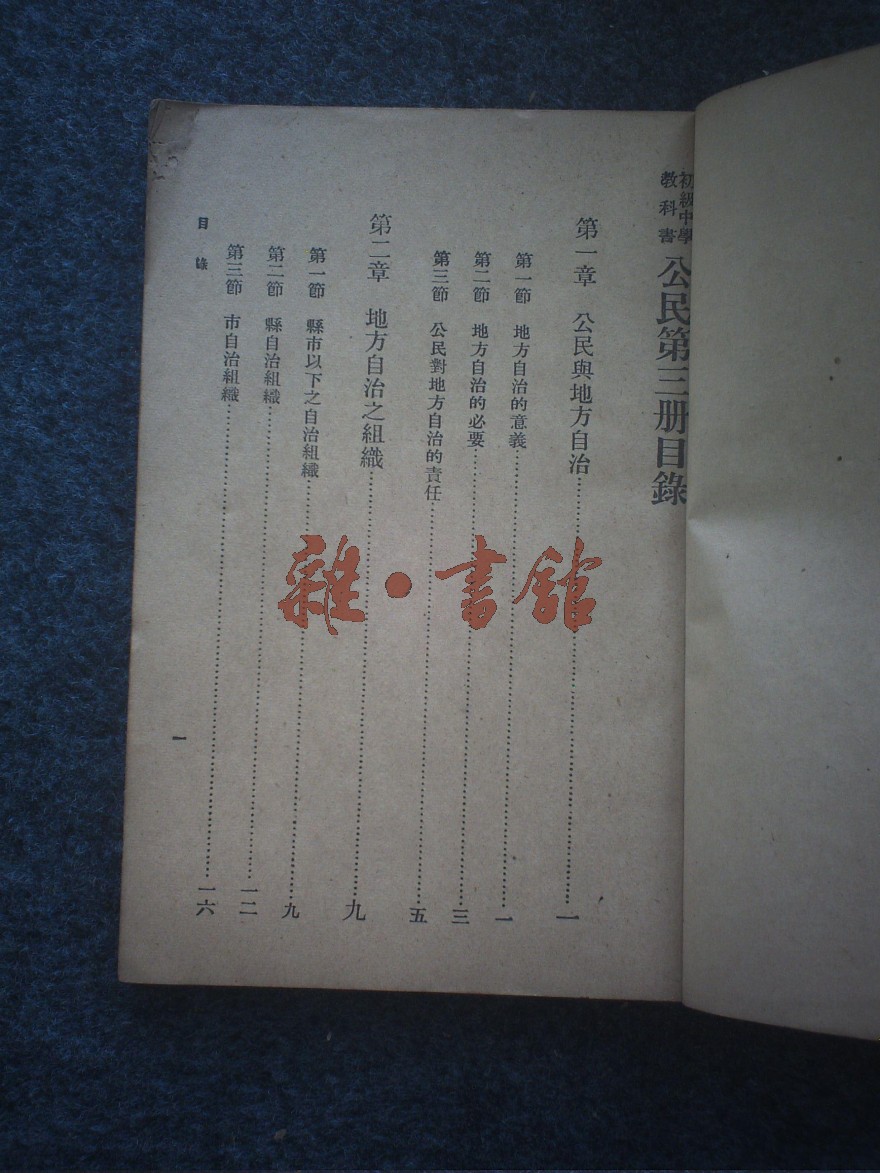 初級中學
教科書
公民第三册目錄
第一章 公民與地方自治……一
第一節 地方自治的意義……一
第二節 地方自治的必要……三
第三節 公民對地方自治的責任……五
第二章 地方自治之組織……九
第一節 縣市以下之自治組織……九
第二節 縣自治組織……一二
第三節 市自治組織……一六
目錄
一
雜·書館